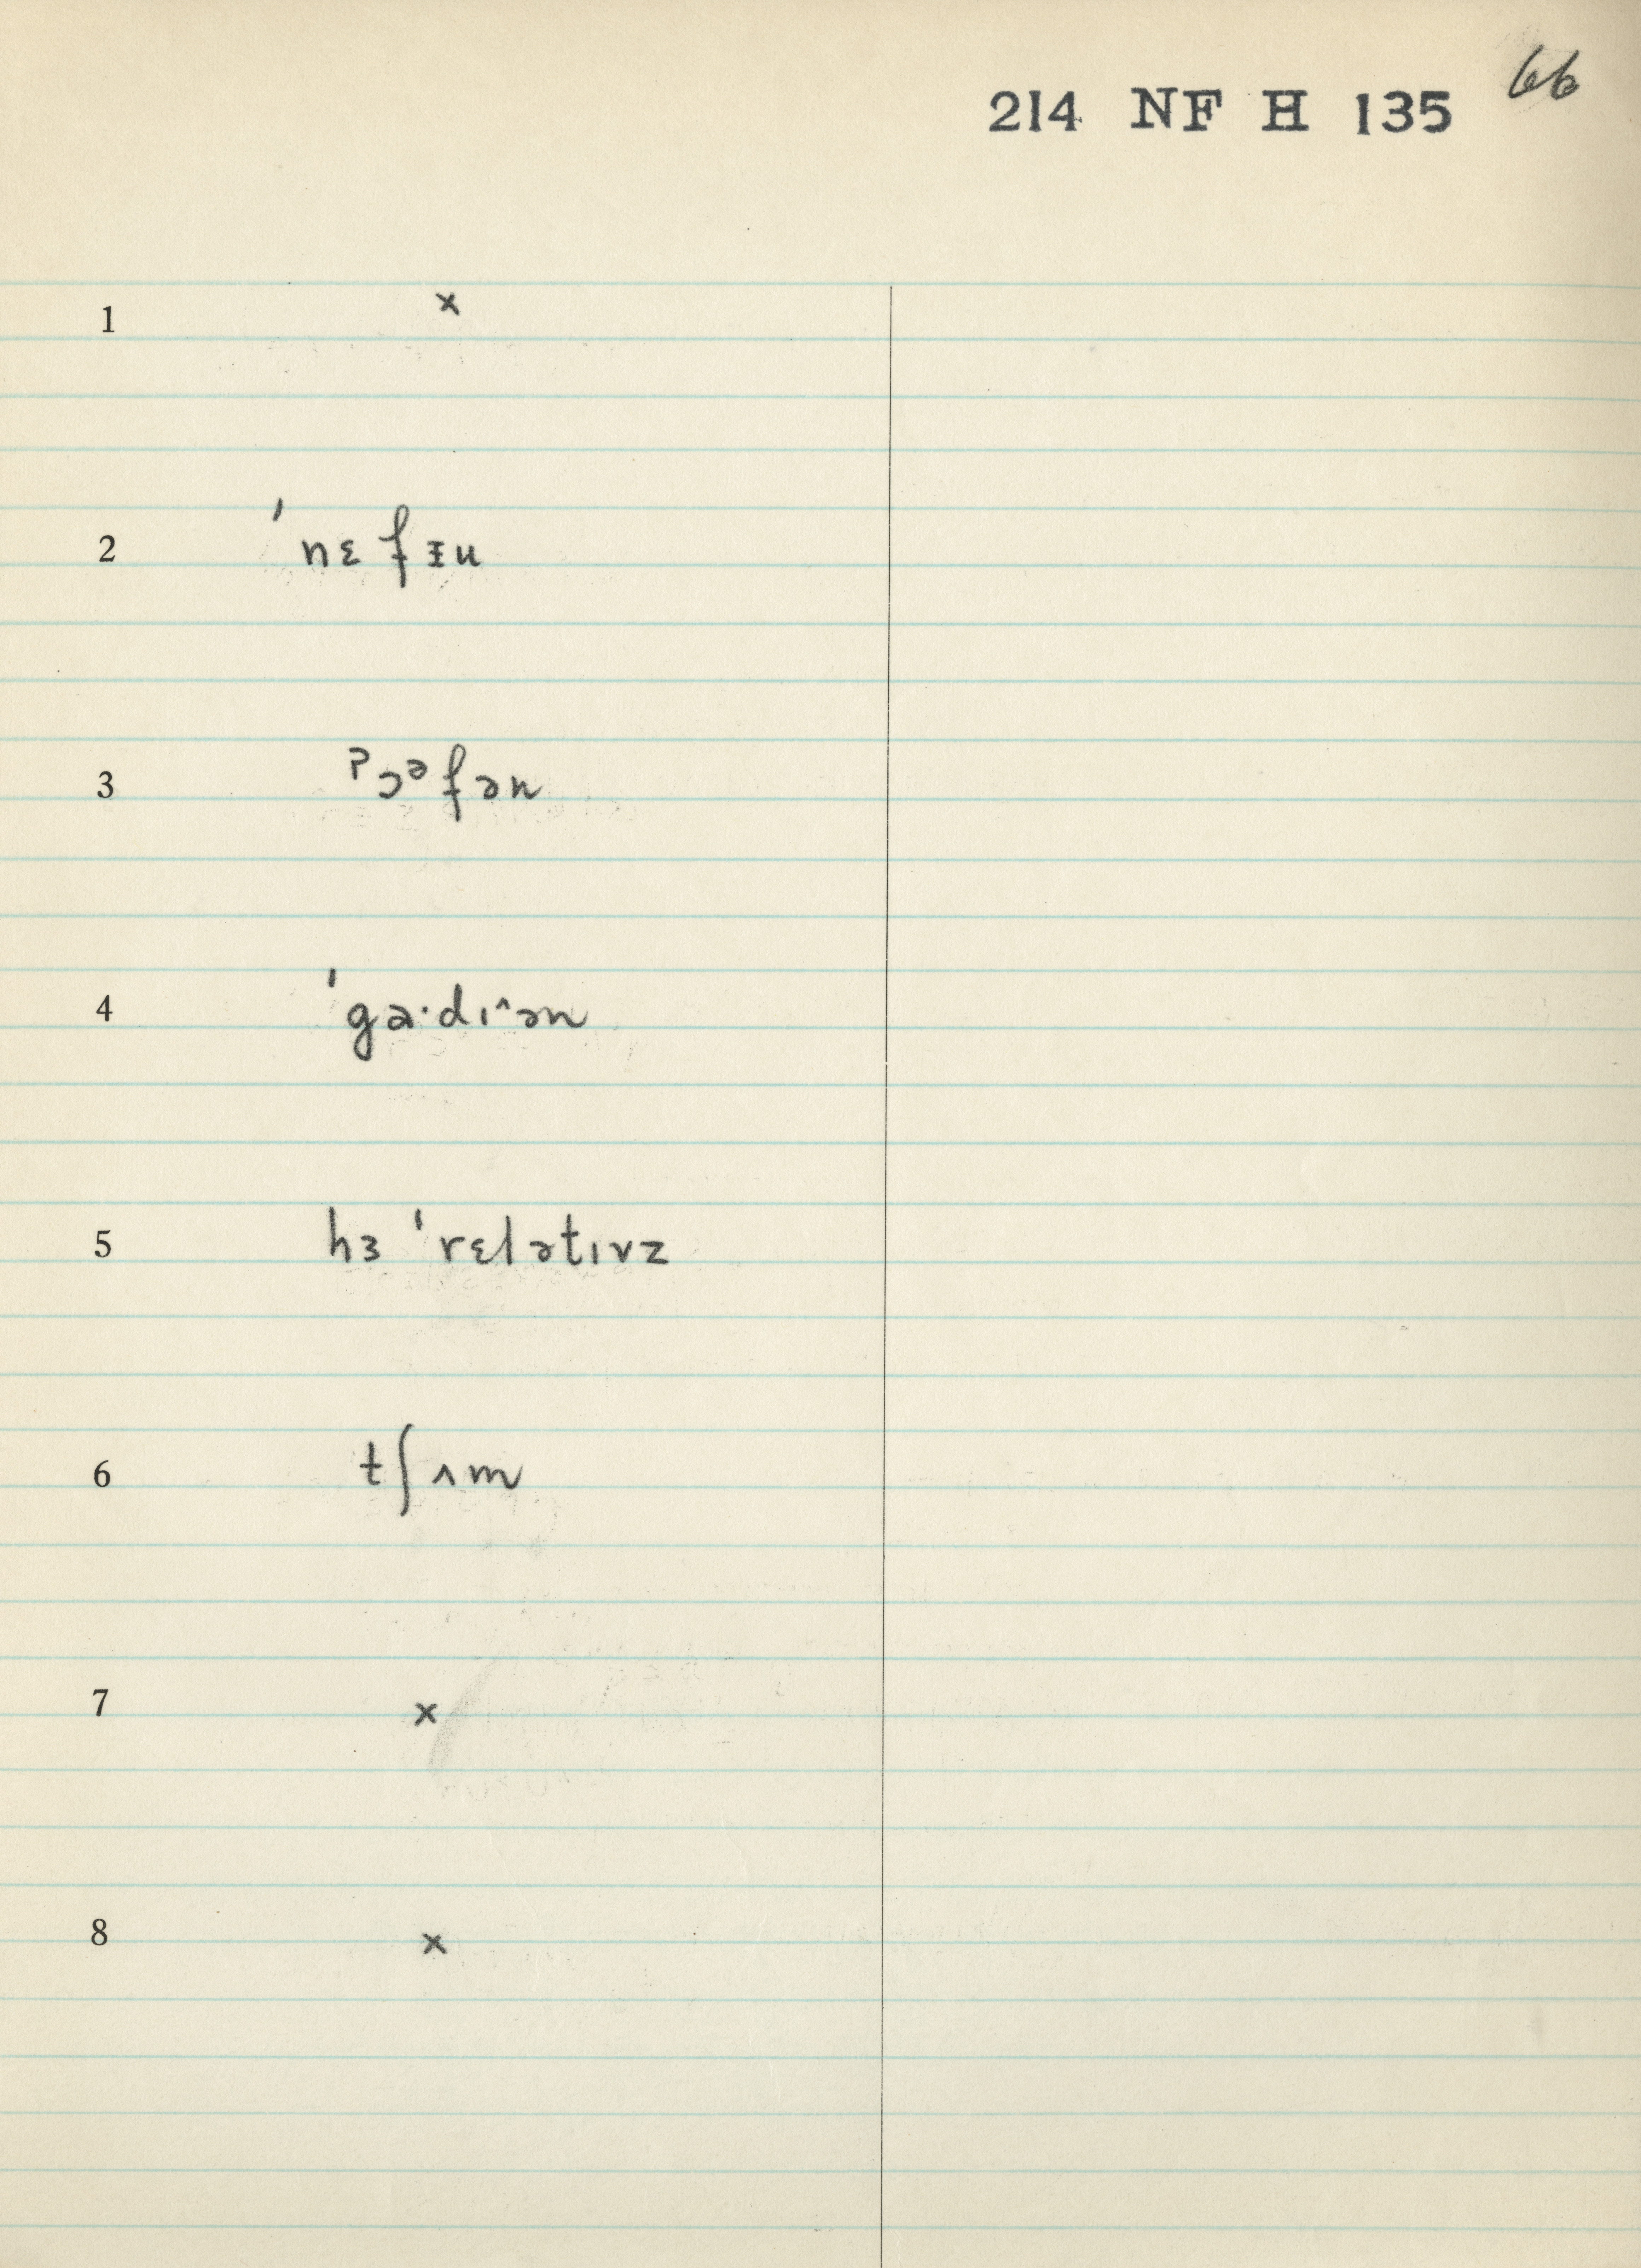 66
214 NF H 135
1 ×
2 ˈnɛfᵻu
3 ˀɔᵊfən
4 ˈgɑ·dɪ^ən
5 hɜ ˈrɛlətɪvz
6 tʃʌm
7 ×
8 ×